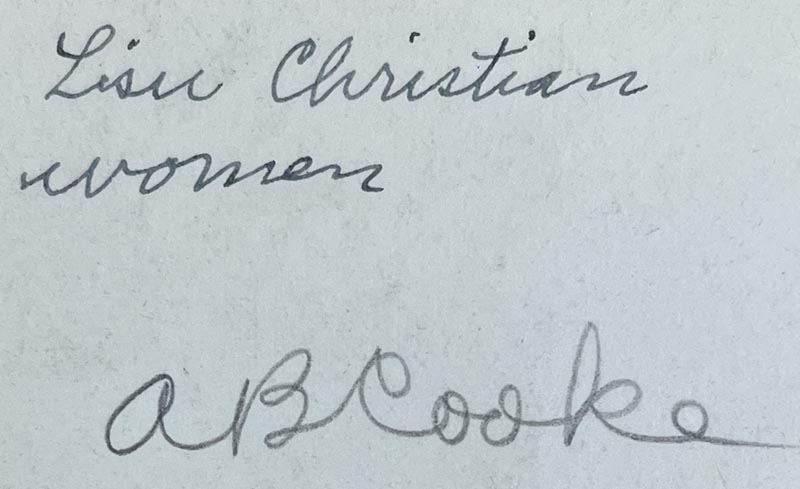 Lisu Christian
women
ABCooke